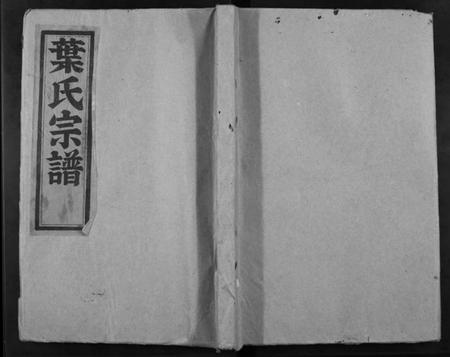 葉氏宗譜